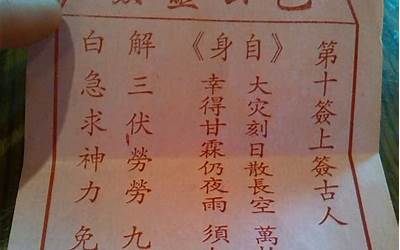 第十簽上簽古人
《自身》
大灾刻日散長空 萬
幸得甘霖仍夜雨 須
解三伏勞勞九
白急求神力免